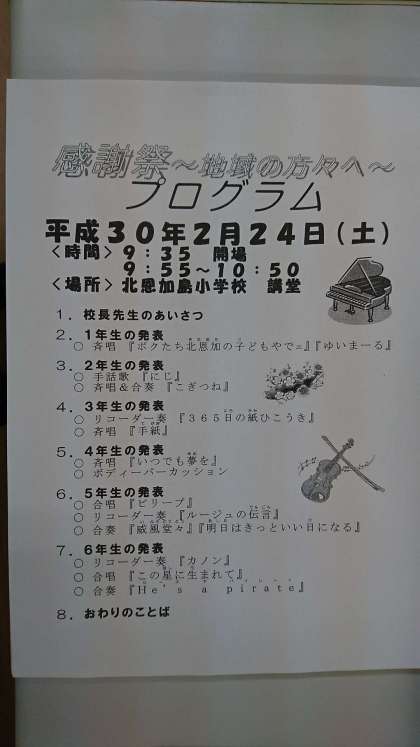 感謝祭～地域の方々へ～
プログラム
平成30年2月24日(土)
〈時間〉9：35　開場
9：55～10：50
〈場所〉北恩加島小学校　講堂
1．校長先生のあいさつ
2．1年生の発表
○ 斉唱 『ボクたち北恩加の子どもやで=』『ゆいまーる』
3．2年生の発表
○ 手話歌 『にじ』
○ 斉唱＆合奏 『こぎつね』
4．3年生の発表
○ リコーダー奏 『365日の紙ひこうき』
○ 斉唱 『手紙』
5．4年生の発表
○ 斉唱 『いつでも夢を』
○ ボディーパーカッション
6．5年生の発表
○ 合唱 『ビリーブ』
○ リコーダー奏 『ルージュの伝言』
○ 合奏 『威風堂々』『明日はきっといい日になる』
7．6年生の発表
○ リコーダー奏 『カノン』
○ 合唱 『この星に生まれて』
○ 合奏 『He's a pirate』
8．おわりのことば